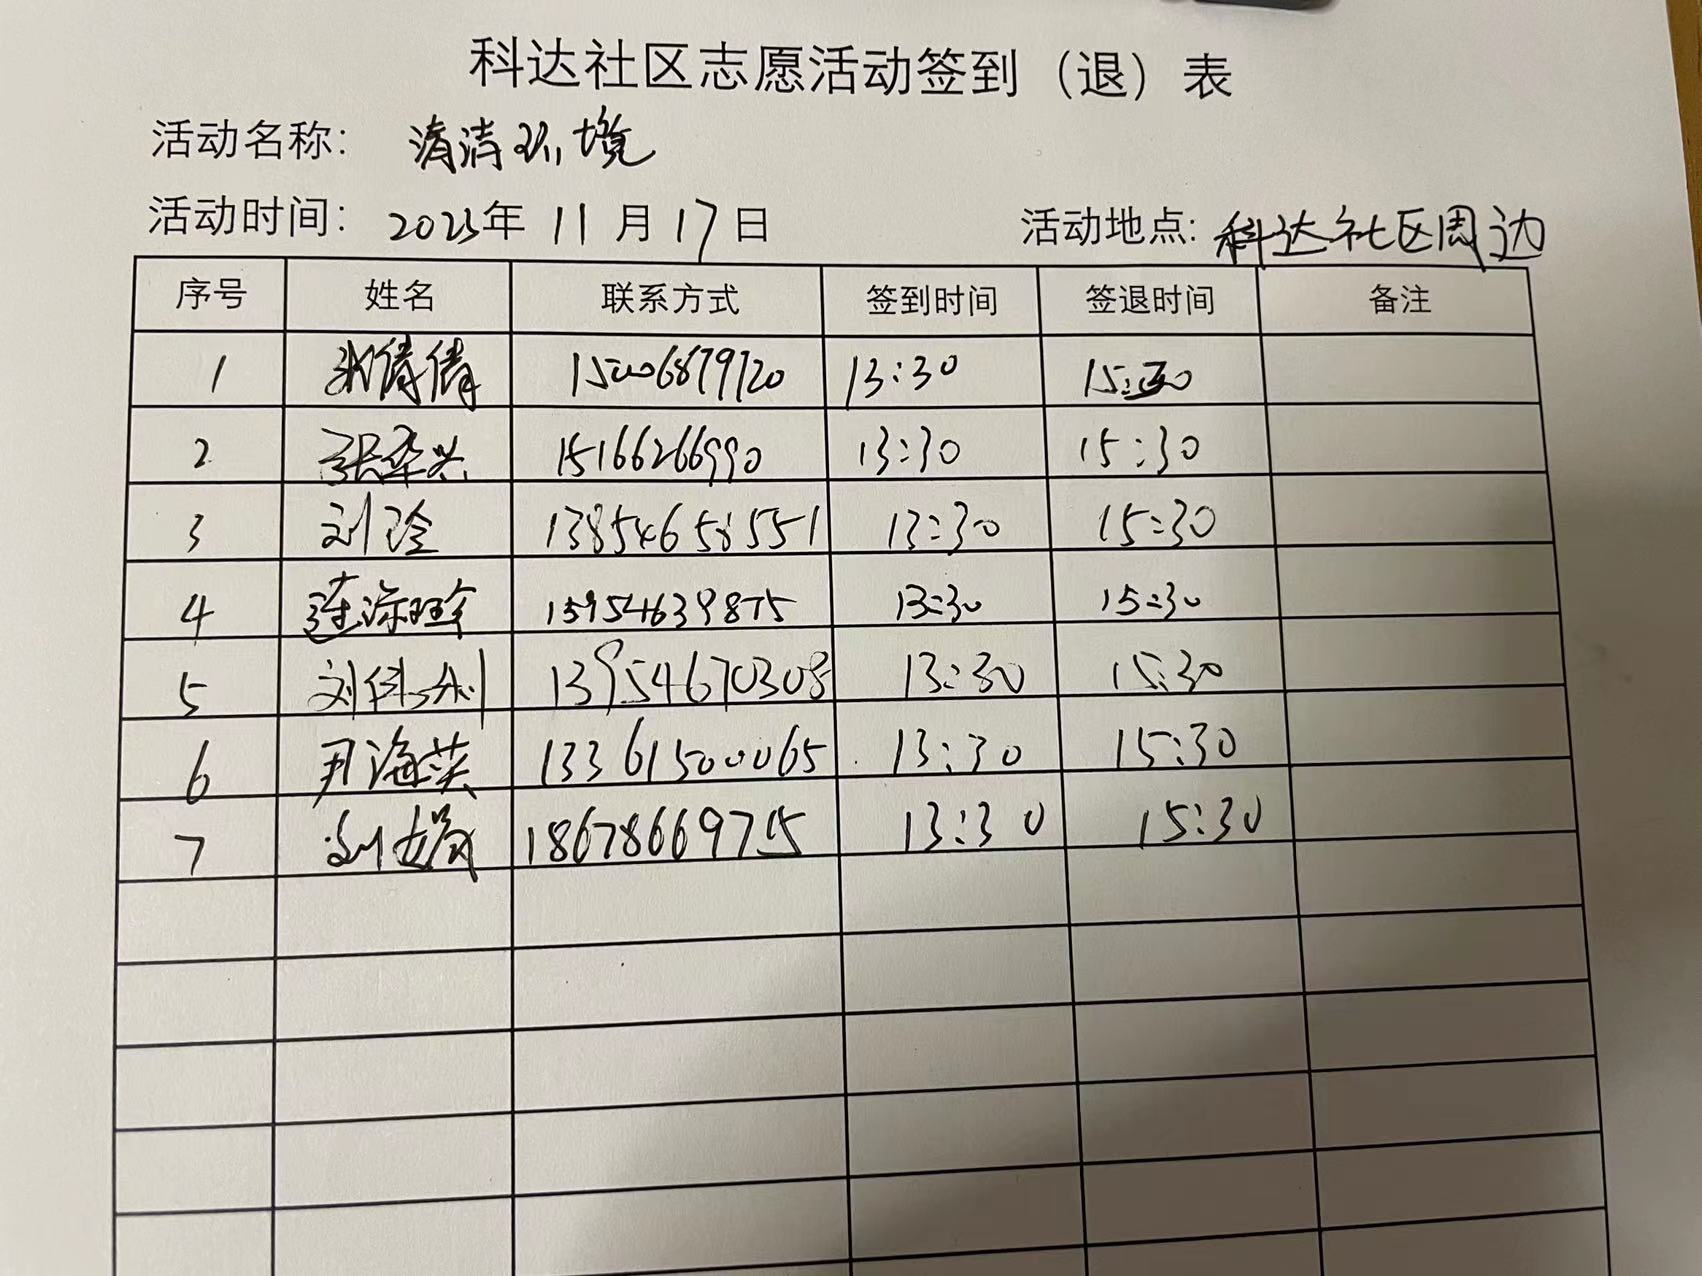 科达社区志愿活动签到（退）表
活动名称： 清清环境
活动时间： 2023年 11月17日 活动地点: 科达社区周边
序号 姓名 联系方式 签到时间 签退时间 备注
1 倩倩 13:30 15:30
2 张华兴 15166266990 13:30 15:30
3 刘玲 13854658551 13:30 15:30
4 15954639875 13:30 15:30
5 刘 13954670308 13:30 15:30
6 尹海英 13361500065 13:30 15:30
7 刘娟 18678669715 13:30 15:30